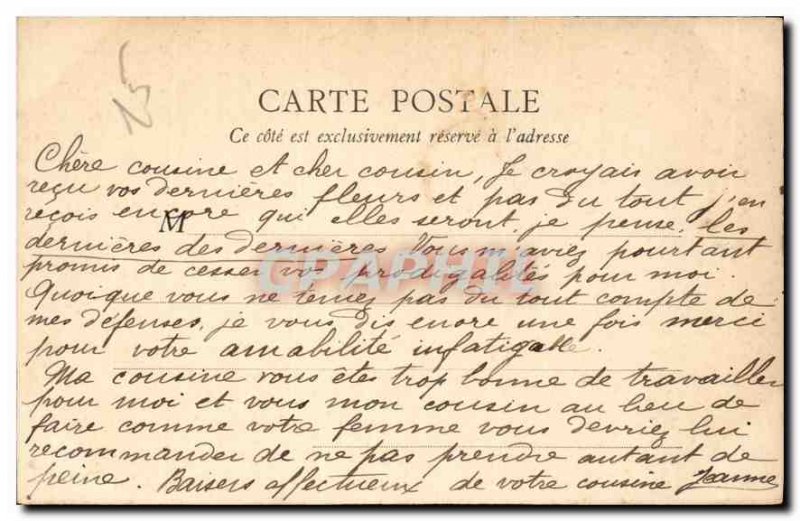 25
CARTE POSTALE
Ce côté est exclusivement réservé à l'adresse
Chère cousine et cher cousin, Je croyais avoir
reçu vos dernières fleurs et pas du tout j'en
reçois encore qui elles seront, je pense, les
M
dernières des dernières Vous m'aviez pourtant
promis de cesser vos prodigalités pour moi.
CPAPHIL
Quoique vous ne teniez pas du tout compte de
mes défenses, je vous dis encore une fois merci
pour votre amabilité infatigable.
Ma cousine vous êtes trop bonne de travailler
pour moi et vous mon cousin au lieu de
faire comme votre femme vous devriez lui
recommander de ne pas prendre autant de
peine. Baisers affectueux de votre cousine Jeanne